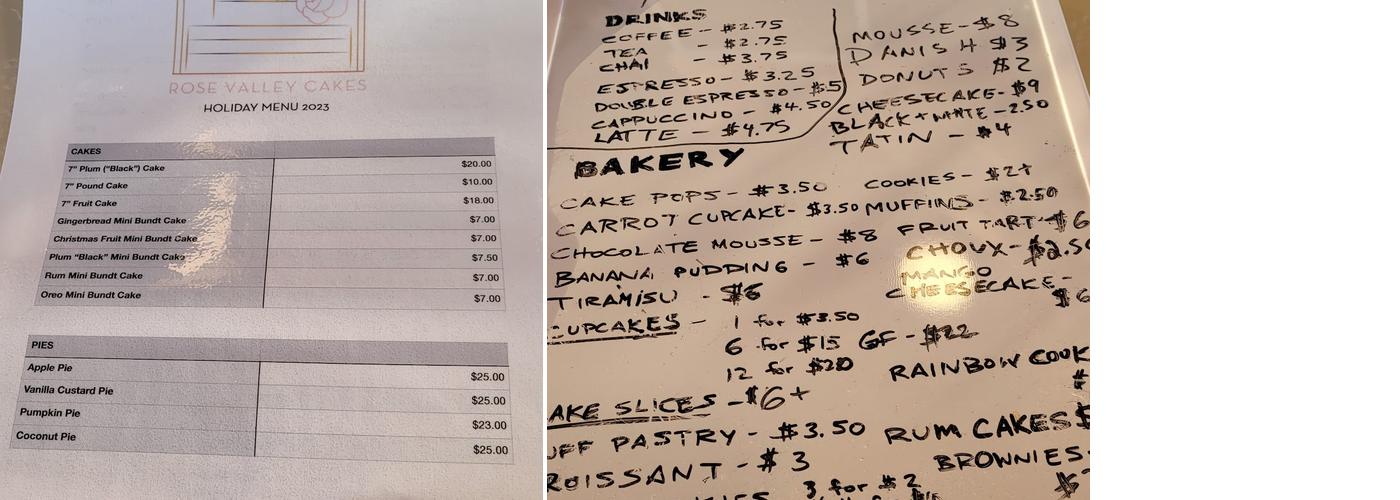 ROSE VALLEY CAKES
HOLIDAY MENU 2023
CAKES
7" Plum ("Black") Cake $20.00
7" Pound Cake $10.00
7" Fruit Cake $18.00
Gingerbread Mini Bundt Cake $7.00
Christmas Fruit Mini Bundt Cake $7.00
Plum "Black" Mini Bundt Cake $7.50
Rum Mini Bundt Cake $7.00
Oreo Mini Bundt Cake $7.00
PIES
Apple Pie $25.00
Vanilla Custard Pie $25.00
Pumpkin Pie $23.00
Coconut Pie $25.00
DRINKS
COFFEE - $2.75
TEA - $2.75
CHAI - $3.75
ESPRESSO - $3.25
DOUBLE ESPRESSO - $5
CAPPUCCINO - $4.50
LATTE - $4.75
MOUSSE - $8
DANISH $3
DONUTS $2
CHEESECAKE - $9
BLACK + WHITE - 2.50
TATIN - $4
BAKERY
CAKE POPS - $3.50 COOKIES - $2+
CARROT CUPCAKE - $3.50 MUFFINS - $2.50
CHOCOLATE MOUSSE - $8 FRUIT TART - $6
BANANA PUDDING - $6 CHOUX - $2.50
TIRAMISU - $6 MANGO
CHEESECAKE -
$6
UPCAKES - 1 for $3.50
6 for $15 GF - $22
12 for $20 RAINBOW COOK
AKE SLICES - $6+
UFF PASTRY - $3.50 RUM CAKES $
ROISSANT - $3 BROWNIES
3 for $2